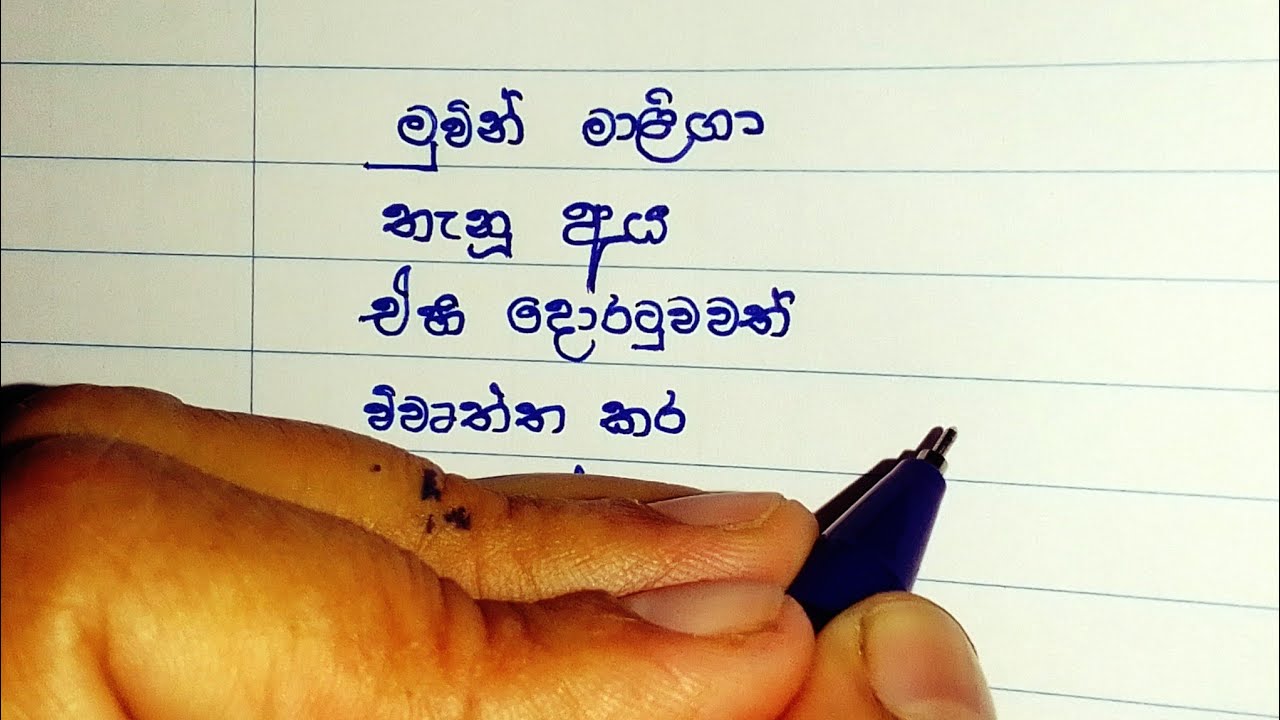 මුවින් මාළිගා
තැනූ අය
ඒහි දොරටුවවත්
විවෘත්ත කර